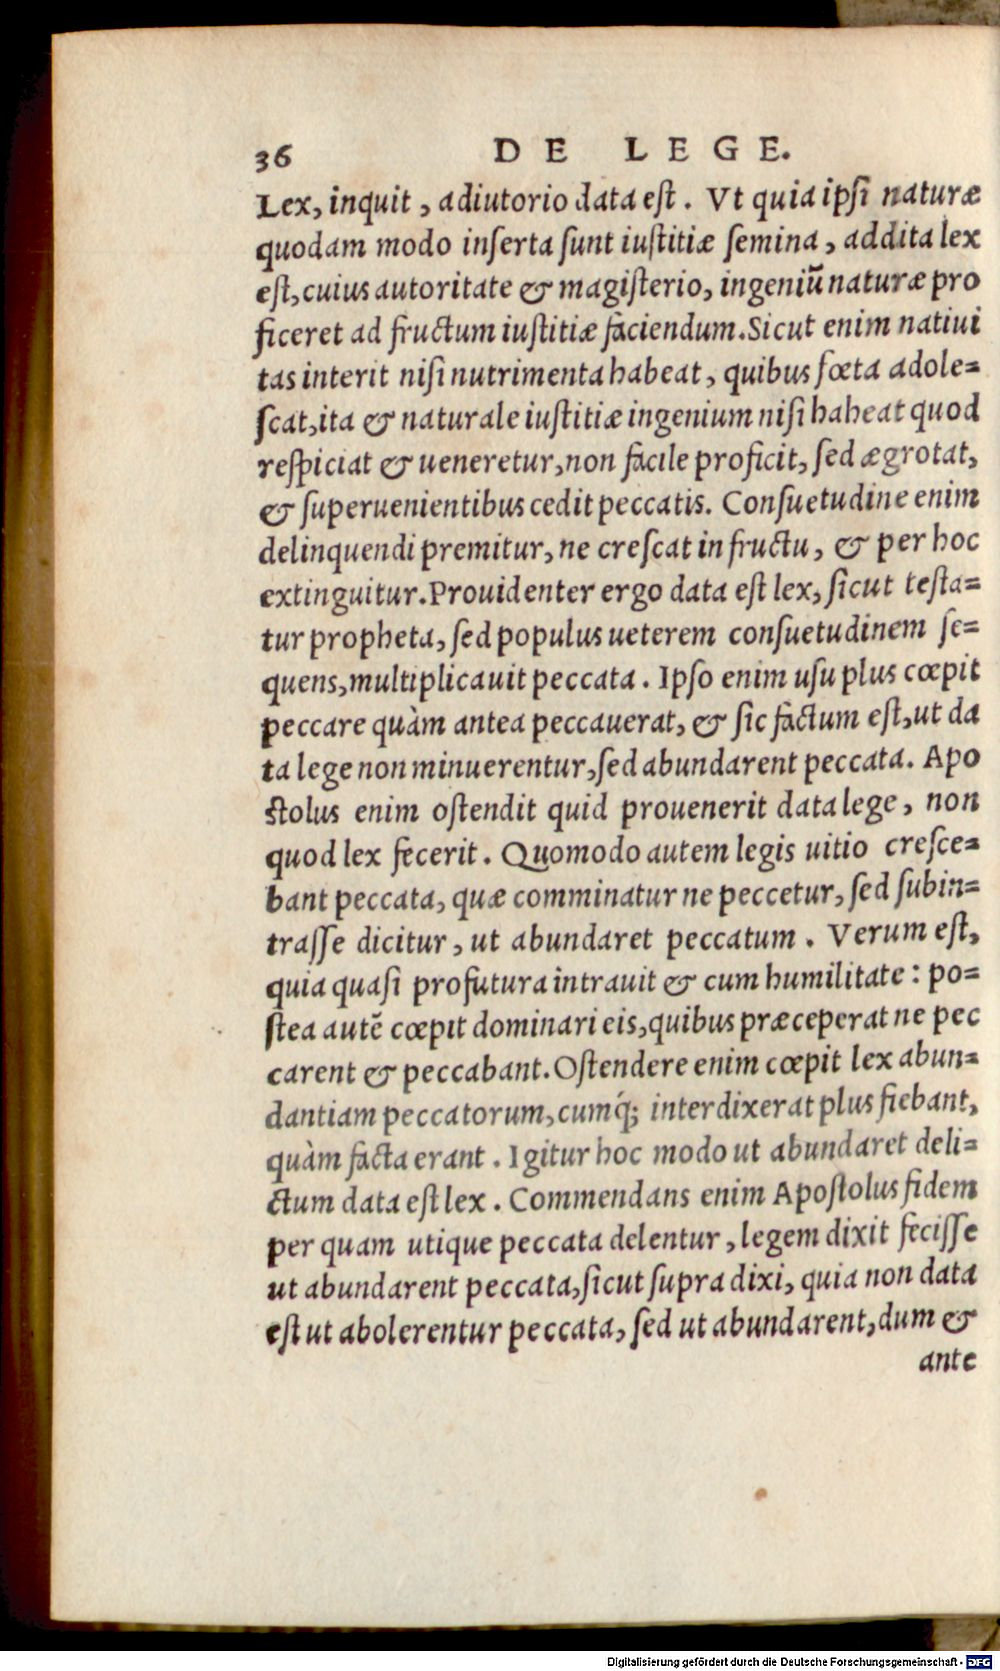 36 DE LEGE.
Lex, inquit, adiutorio data est. Vt quia ipsi naturæ
quodam modo inserta sunt iustitiæ semina, addita lex
est, cuius autoritate & magisterio, ingeniũ naturæ pro
ficeret ad fructum iustitiæ faciendum. Sicut enim natiui
tas interit nisi nutrimenta habeat, quibus fœta adole=
scat, ita & naturale iustitiæ ingenium nisi habeat quod
respiciat & ueneretur, non facile proficit, sed ægrotat,
& superuenientibus cedit peccatis. Consuetudine enim
delinquendi premitur, ne crescat in fructu, & per hoc
extinguitur. Prouidenter ergo data est lex, sicut testa=
tur propheta, sed populus ueterem consuetudinem se=
quens, multiplicauit peccata. Ipso enim usu plus cœpit
peccare quàm antea peccauerat, & sic factum est, ut da
ta lege non minuerentur, sed abundarent peccata. Apo
stolus enim ostendit quid prouenerit data lege, non
quod lex fecerit. Quomodo autem legis uitio cresce=
bant peccata, quæ comminatur ne peccetur, sed subin=
trasse dicitur, ut abundaret peccatum. Verum est,
quia quasi profutura intrauit & cum humilitate: po=
stea autẽ cœpit dominari eis, quibus præceperat ne pec
carent & peccabant. Ostendere enim cœpit lex abun=
dantiam peccatorum, cumq́; interdixerat plus fiebant,
quàm facta erant. Igitur hoc modo ut abundaret deli=
ctum data est lex. Commendans enim Apostolus fidem
per quam utique peccata delentur, legem dixit fecisse
ut abundarent peccata, sicut supra dixi, quia non data
est ut abolerentur peccata, sed ut abundarent, dum &
ante
Digitalisierung gefördert durch die Deutsche Forschungsgemeinschaft - DFG